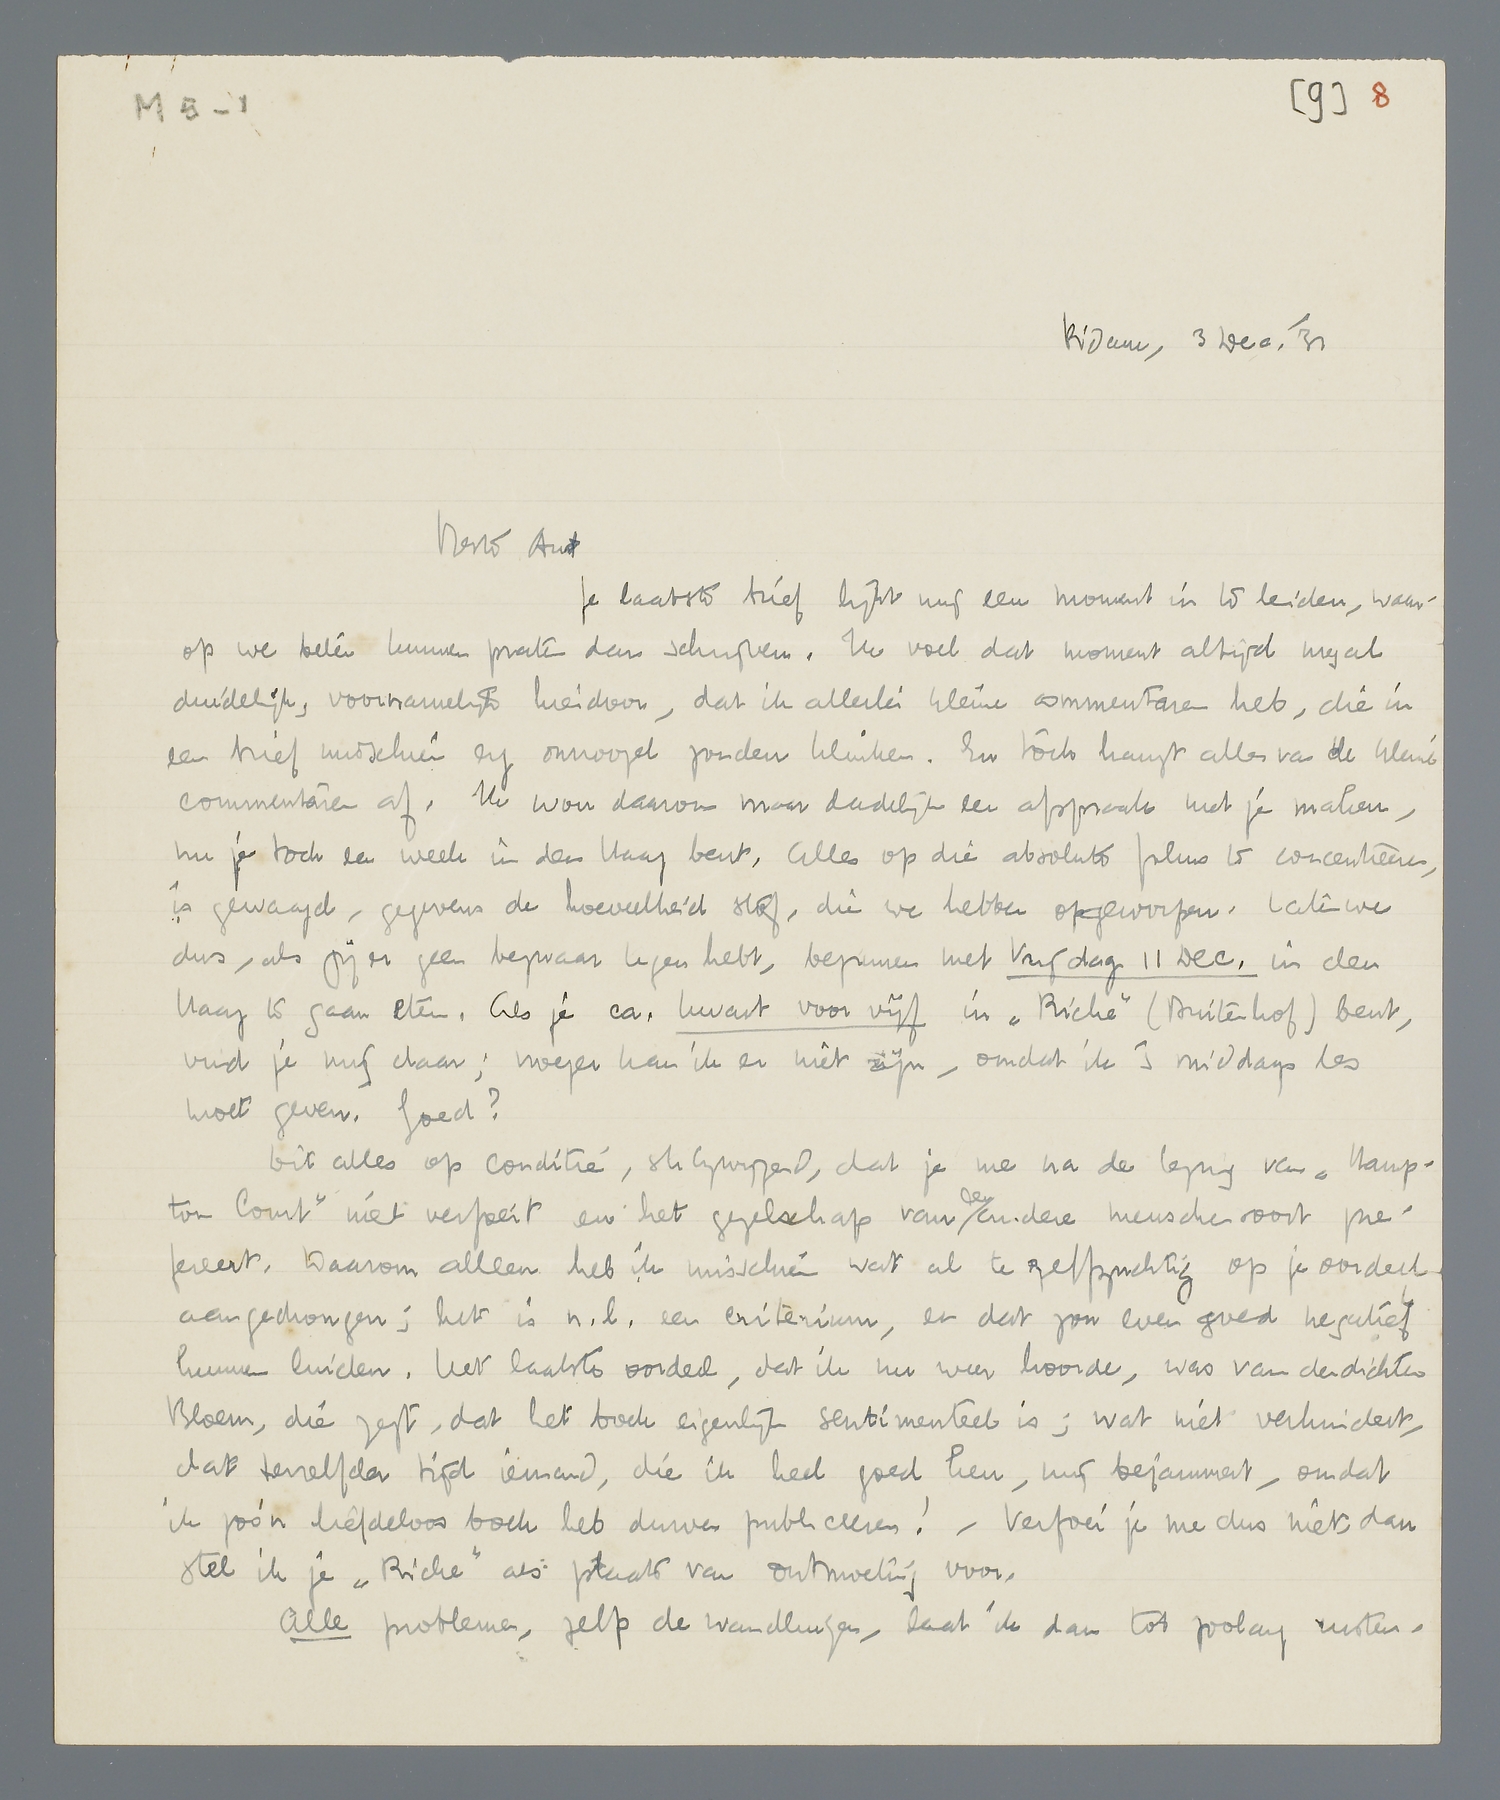 M 5-1
[9] 8
R'dam, 3 Dec. '31
Beste Ant
Je laatste brief lijkt mij een moment in te leiden, waar-
op we beter kunnen praten dan schrijven. Ik voel dat moment altijd nogal
duidelijk, voornamelijk hierdoor, dat ik allerlei kleine commentaren heb, die in
een brief misschien erg onnoozel zouden klinken. En tòch hangt alles van de kleine
commentaren af. Ik wou daarom maar dadelijk een afspraak met je maken,
nu je toch een week in den Haag bent. Alles op die absolute plus te concentreeren,
is gewaagd, gegevens de hoeveelheid stof, die we hebben opgeworpen. Laten we
dus, als jij er geen bezwaar tegen hebt, beginnen met Vrijdag 11 Dec. in den
Haag te gaan eten. Als je ca. kwart voor vijf in „Riche" (Buitenhof) bent,
vind je mij daar; vroeger kan ik er niet zijn, omdat ik 's middags les
moet geven. Goed?
Dit alles op conditie, stilzwijgend, dat je me na de lezing van „Hamp-
ton Court" niet verfoeit en het gezelschap van den andere menschensoort pre-
fereert. Daarom alleen heb ik misschien wat al te zelfzuchtig op je oordeel
aangedrongen; het is n.l. een criterium, en dat zou even goed negatief
kunnen luiden. Het laatste oordeel, dat ik nu weer hoorde, was van den dichter
Bloem, die zegt, dat het boek eigenlijk sentimenteel is; wat niet verhindert,
dat terzelfder tijd iemand, die ik heel goed ken, mij bejammert, omdat
ik zoo'n liefdeloos boek heb durven publiceeren! – Verfoei je me dus niet, dan
stel ik je „Riche" als plaats van ontmoeting voor.
Alle problemen, zelfs de wandluizen, laat ik dan tot zoolang rusten.